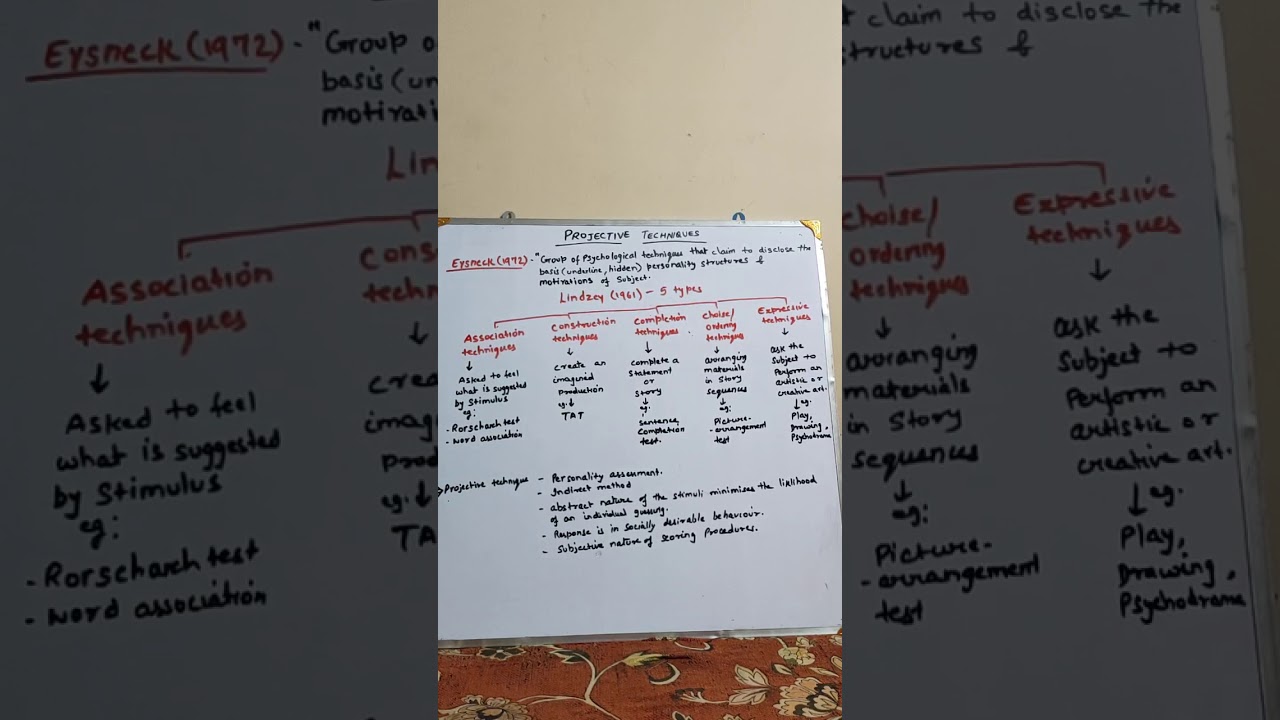 PROJECTIVE TECHNIQUES
Eysneck (1972) - "Group of Psychological techniques that claim to disclose the
basis (underline, hidden) personality structures &
motivations of Subject.
Lindzey (1961) - 5 types
Association
techniques
↓
Asked to feel
what is suggested
by Stimulus
eg:
- Rorscharch test
- Word association
Construction
techniques
↓
create an
imagined
production
eg. ↓
TAT
Completion
techniques
↓
complete a
statement
or
story
↓
eg.
sentence
completion
test.
choise/
ordering
techniques
↓
arranging
materials
in Story
sequences
↓
eg:
Picture-
-arrangement
test
Expressive
techniques
↓
ask the
Subject to
Perform an
artistic or
creative art.
↓ eg.
Play,
Drawing,
Psychodrama
Projective technique - Personality assessment.
- Indirect method
- abstract nature of the stimuli minimises the liklihood
of an individual guessing.
- Response is in socially desirable behaviour.
- Subjective nature of scoring procedures.